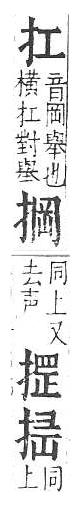 扛
音岡舉也
横扛對舉
掆
同上又
去声
同
上